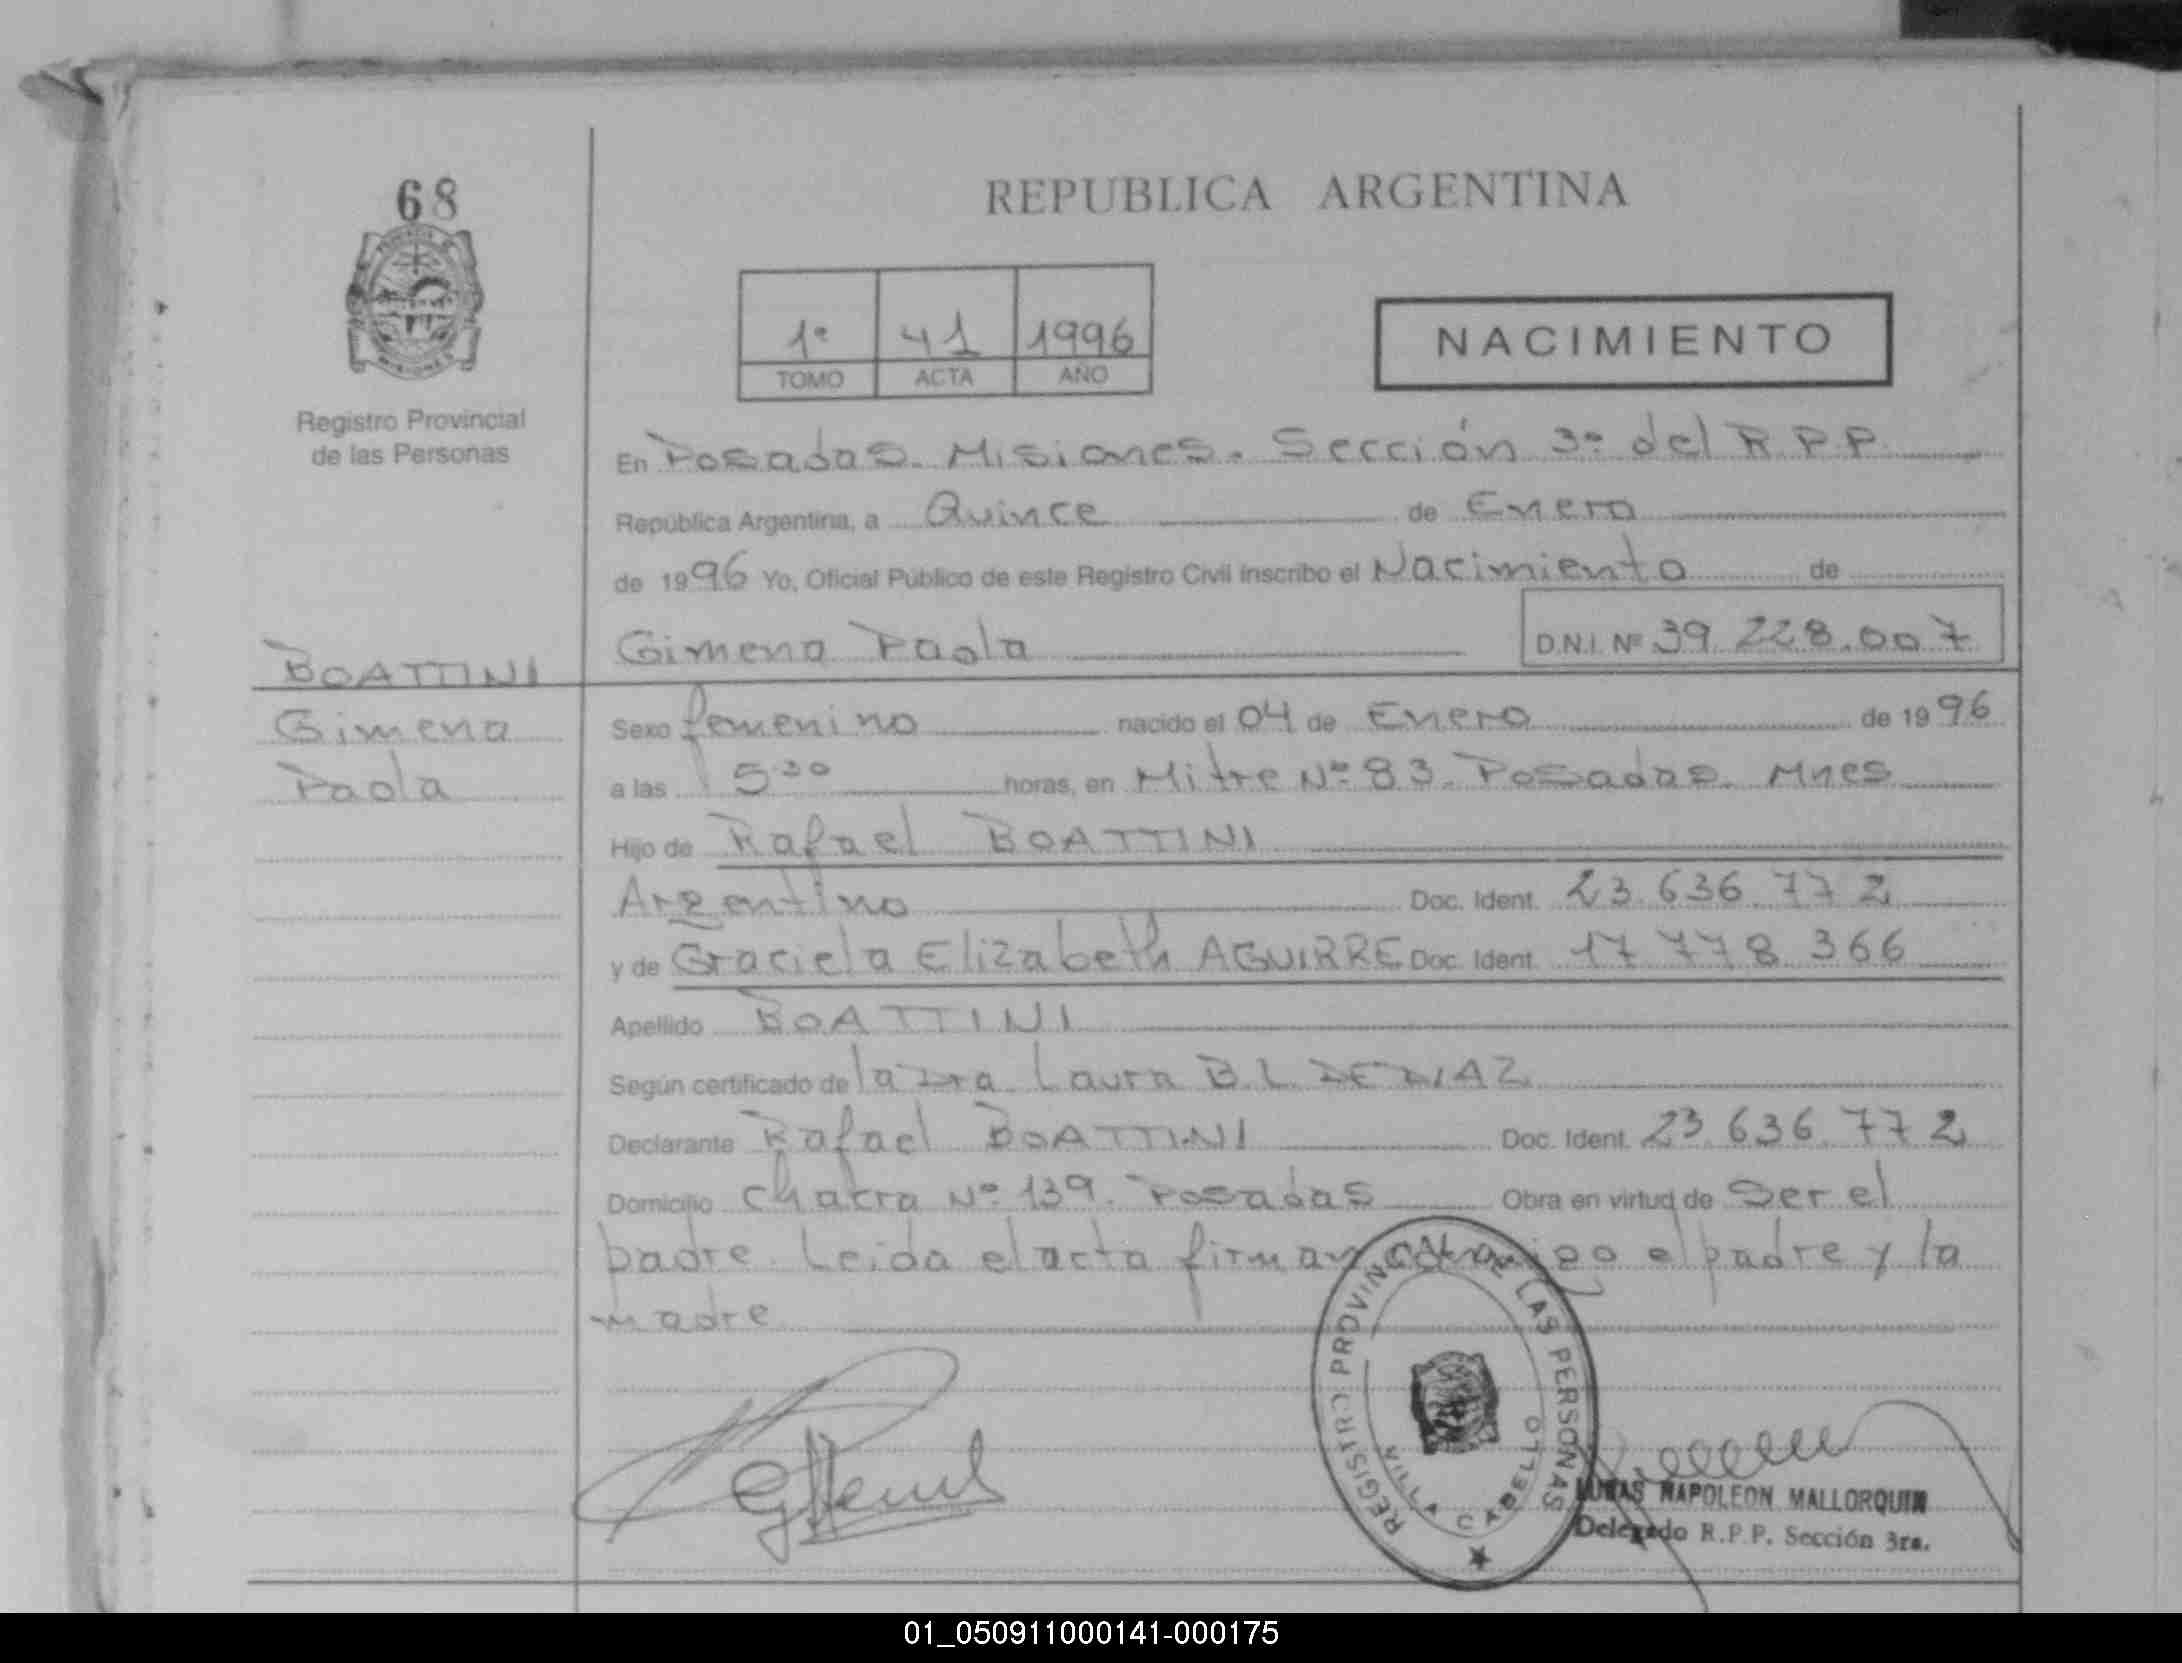 68
REPUBLICA ARGENTINA
1º 41 1996
TOMO ACTA AÑO
NACIMIENTO
Registro Provincial
de las Personas
En Posadas. Misiones. Sección 3º del R.P.P.
República Argentina, a Quince de Enero
de 1996 Yo, Oficial Público de este Registro Civil inscribo el Nacimiento de
Gimena Paola D.N.I. Nº 39.228.007
BOATTINI
Gimena
Paola
Sexo femenino nacido el 04 de Enero de 1996
a las 5 30 horas, en Mitre Nº 83. Posadas. Mnes
Hijo de Rafael BOATTINI
Argentino Doc. Ident. 23.636.772
y de Graciela Elizabeth AGUIRRE Doc. Ident. 17 778 366
Apellido BOATTINI
Según certificado de la Dra. Laura B. L. DE DIAZ
Declarante Rafael BOATTINI Doc. Ident. 23.636.772
Domicilio Chakra Nº 139. Posadas Obra en virtud de Ser el
padre. Leida el acta firman conmigo el padre y la
madre
REGISTRO PROVINCIAL DE LAS PERSONAS
VILLA CABELLO
LUCAS NAPOLEON MALLORQUIN
Delegado R.P.P. Sección 3ra.
01_050911000141-000175